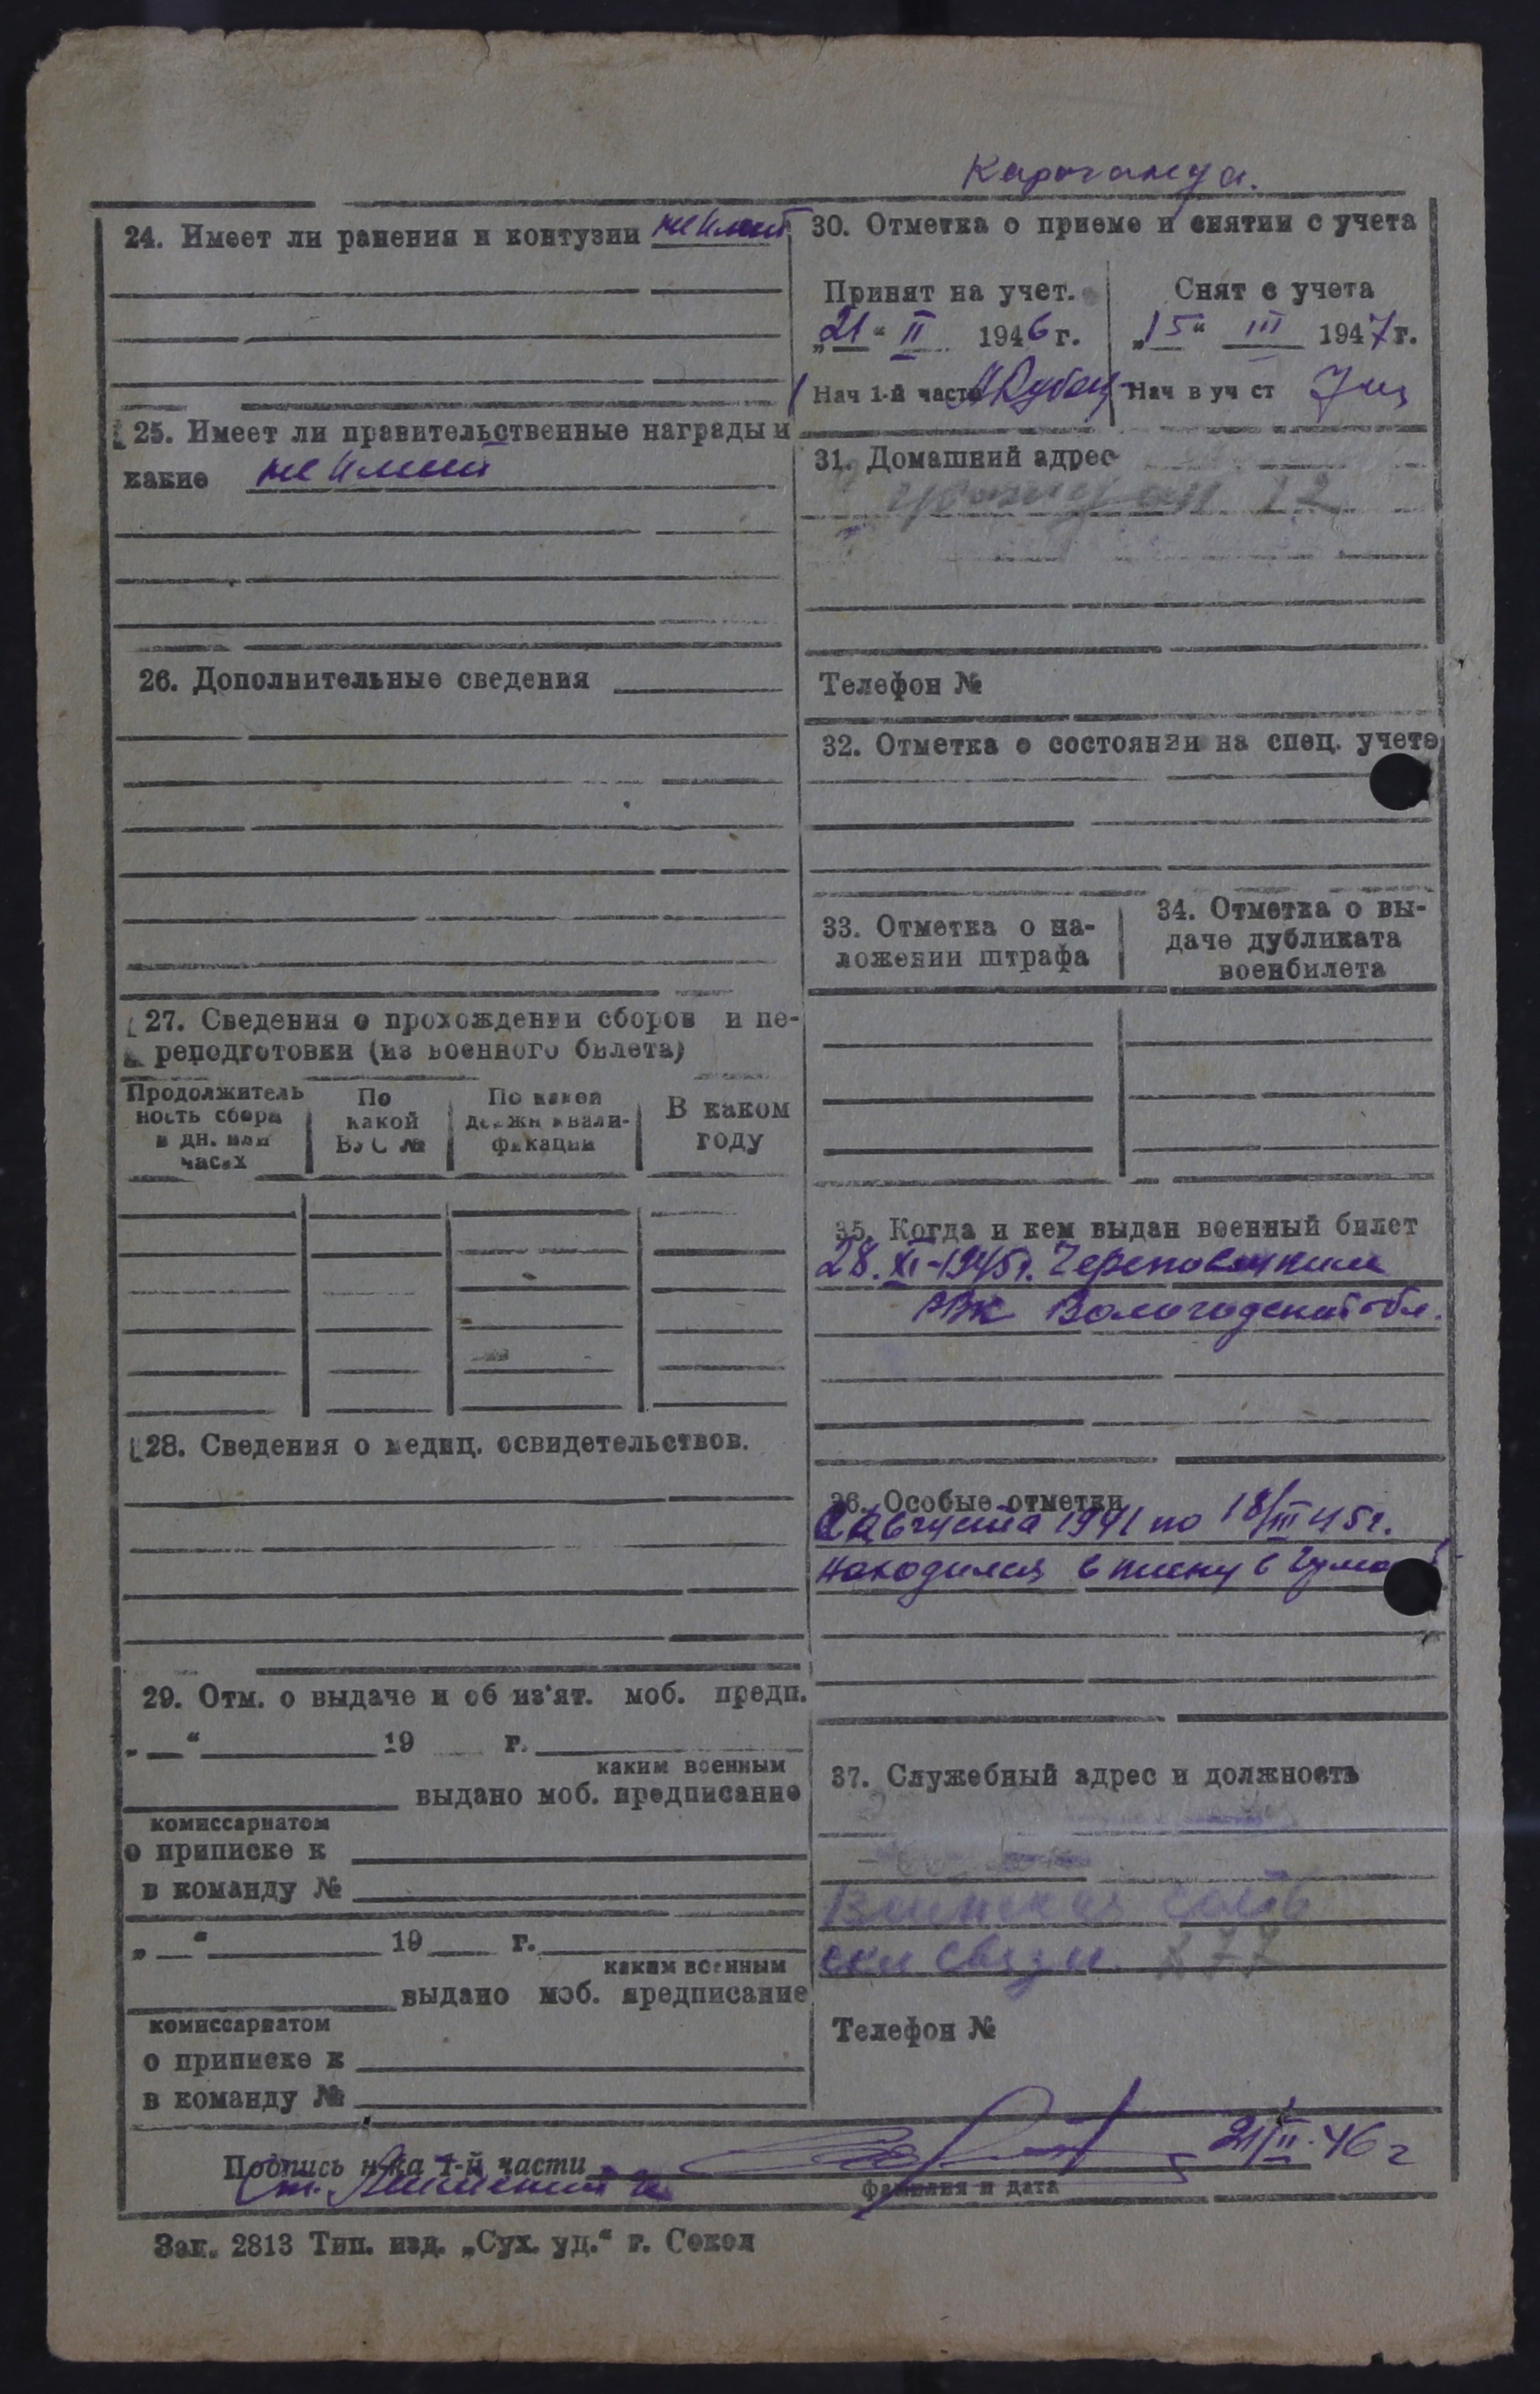 Караганда.
24. Имеет ли ранения и контузии не имеет
25. Имеет ли правительственные награды и
какие не имеет
26. Дополнительные сведения
27. Сведения о прохождении сборов и пе-
реподготовки (из военного билета)
Продолжитель
ность сбора
в дн. или
часах
По
какой
ВУС №
По какой
должн квали-
фикации
В каком
году
28. Сведения о медиц. освидетельствов.
29. Отм. о выдаче и об из'ят. моб. предп.
„ “ 19 г.
каким военным
выдано моб. предписание
комиссариатом
о приписке к
в команду №
„ “ 19 г.
каким военным
выдано моб. предписание
комиссариатом
о приписке к
в команду №
30. Отметка о приеме и снятии с учета
Принят на учет.
„21“ II 1946 г.
Нач 1-й части
Снят с учета
„15“ III 1947 г.
Нач в уч ст
31. Домашний адрес
12
Телефон №
32. Отметка о состоянии на спец. учете
33. Отметка о на-
ложении штрафа
34. Отметка о вы-
даче дубликата
военбилета
35. Когда и кем выдан военный билет
28.XI-1945г. Череповецким
РВК Вологодской обл.
36. Особые отметки
С августа 1941 по 18/III 45г.
находился в плену в
37. Служебный адрес и должность
связи. 277
Телефон №
Подпись н-ка 1-й части 21/II.46 г
фамилия и дата
Зак. 2813 Тип. изд. „Сух. уд.“ г. Сокол